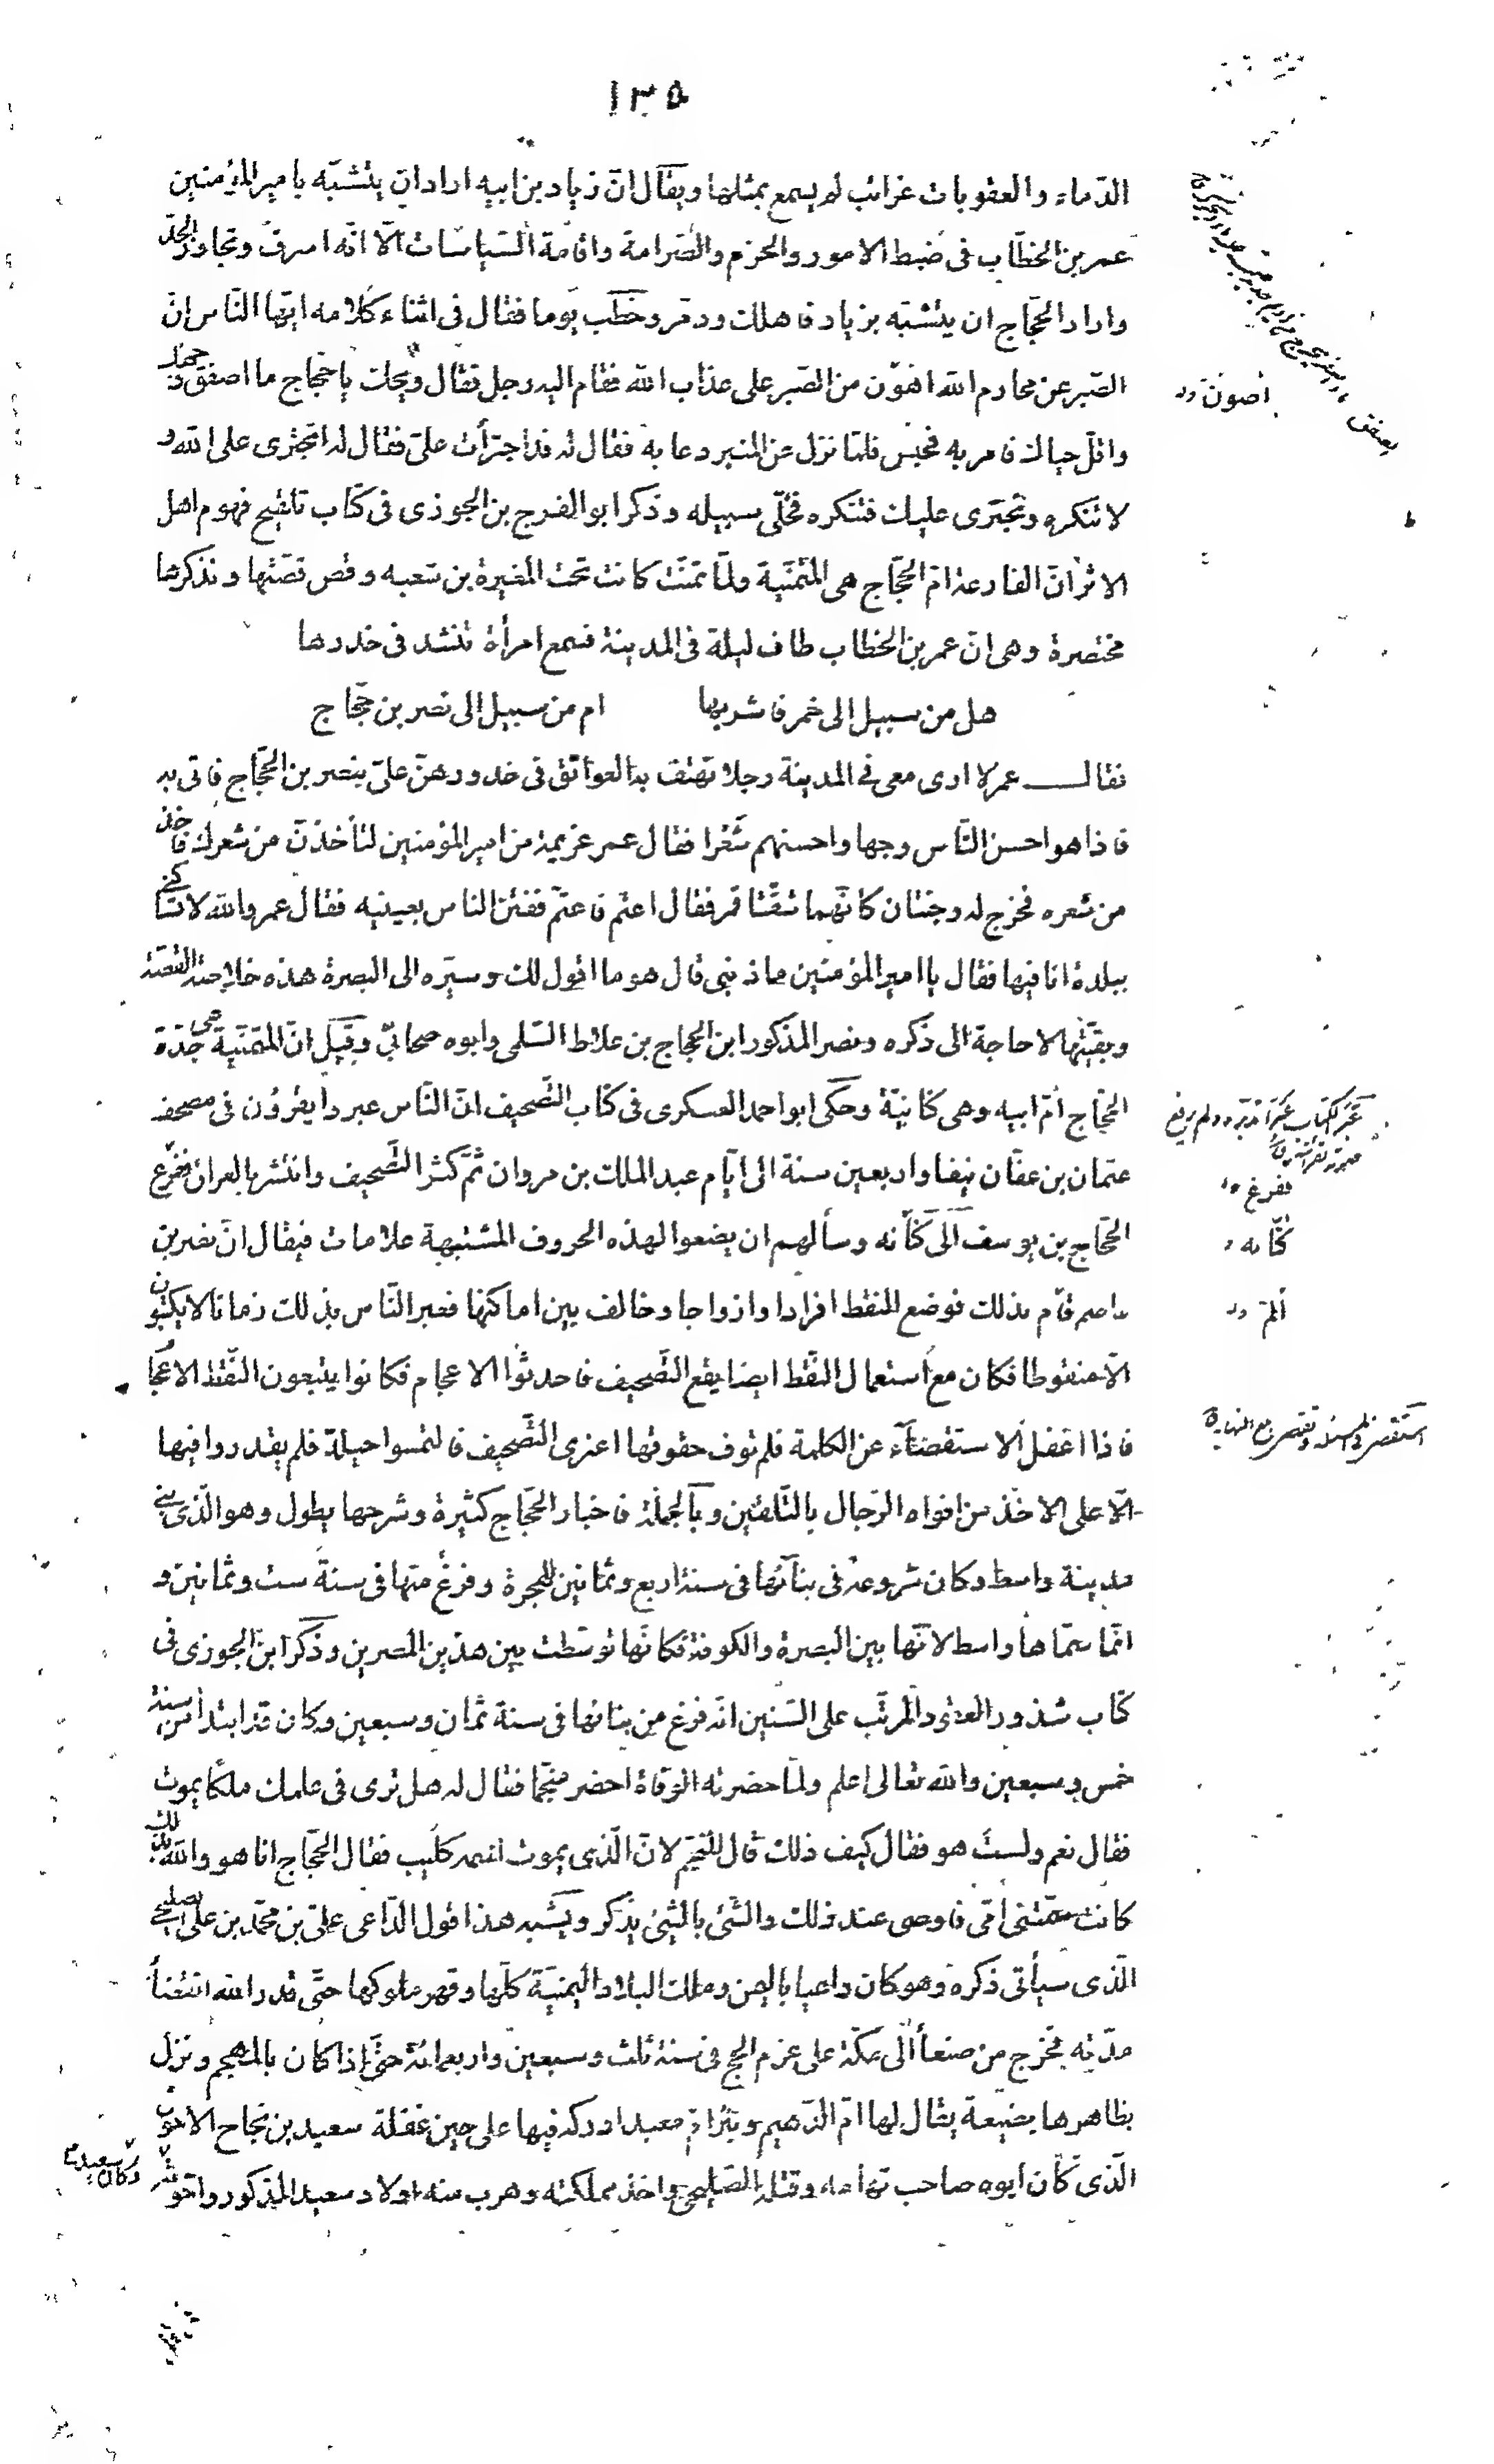 ١٣٥
الدّماء والعقوبات غرائب لم يسمع بمثلها ويقال انّ زياد بن ابيه اراد ان يتشبّه بامير المؤمنين
عمر بن الخطّاب فى ضبط الامور والحزم والصّرامة واقامة السّياسات الّا انّه اسرف وتجاوز الحدّ
واراد الحجّاج ان يتشبّه بزياد فاهلك ودمّر وخطب يوما فقال فى اثناء كلامه ايّها النّاس انّ
الصّبر عن محارم الله اهون من الصّبر على عذاب الله فقام اليه رجل فقال ويحك يا حجّاج ما اصفق وجهك
واقلّ حياك فامر به فحبس فلمّا نزل عن المنبر دعا به فقال له قد اجترأت علىّ فقال له اتجترى على الله و
لا تنكره ونجترى عليك فتنكره فخلّى سبيله وذكر ابو الفرج بن الجوزى فى كتاب تلقيح فهوم اهل
الاثر انّ الفارعة امّ الحجّاج هى المتمنّية ولمّا تمنّت كانت تحت المغيرة بن شعبه وقصّ قصّتها ونذكرها
مختصرة وهى انّ عمر بن الخطاب طاف ليلة فى المدينة فسمع امرأة تنشد فى خدرها
هل من سبيل الى خمر فاشربها ام من سبيل الى نصر بن حجّاج
فقال عمر لا ارى معى فى المدينة رجلا تهتف به العواتق فى خدورهنّ علىّ بنصر بن الحجّاج فاتى به
فاذا هو احسن النّاس وجها واحسنهم شعرا فقال عمر عزيمة من امير المؤمنين لنأخذنّ من شعرك فاخذ
من شعره فخرج له وجنتان كانّهما شقّتا قمر فقال اعتمّ فاعتمّ ففتن الناس بعينيه فقال عمر والله لا تساكنّى
ببلدة انا فيها فقال يا امير المؤمنين ما ذنبى قال هو ما اقول لك وسيّره الى البصرة هذه خلاصة القصّة
وبقيّتها لا حاجة الى ذكره ونصر المذكور ابن الحجاج بن علاط السّلمى وابوه صحابىّ وقيل انّ المتمنّية هى جدّة
الحجّاج امّ ابيه وهى كنانيّة وحكى ابو احمد العسكرى فى كتاب التّصحيف انّ النّاس عبروا يقرؤن فى مصحف
عثمان بن عفّان نيفا واربعين سنة الى ايّام عبد الملك بن مروان ثمّ كثر التّصحيف وانتشر بالعراق ففزع
الحجّاج بن يوسف الى كتّابه وسألهم ان يضعوا لهذه الحروف المشتبهة علامات فيقال انّ نصر بن
عاصم قام بذلك فوضع النقط افرادا وازواجا وخالف بين اماكنها فعبر النّاس بذلك زمانا لا يكتبون
الّا منقوطا فكان مع استعمال النّقط ايضا يقع التّصحيف فاحدثوا الاعجام فكانوا يتبعون النّقط الاعجا
فاذا اغفل الاستقصاء عن الكلمة فلم توف حقوقها اعترى التّصحيف فالتمسوا حيلة فلم يقدروا فيها
الّا على الاخذ من افواه الرّجال بالتّلقين وبالجملة فاخبار الحجّاج كثيرة وشرحها يطول وهو الّذى بنى
مدينة واسط وكان شروعه فى بنائها فى سنة اربع وثمانين للهجرة وفرغ منها فى سنة ست وثمانين و
انّما سمّاها واسط لانّها بين البصرة والكوفة فكانّها توسّطت بين هذين المصرين وذكر ابن الجوزى فى
كتاب شذور العقود المرتّب على السّنين انّه فرغ من بنائها فى سنة ثمان وسبعين وكان قد ابتدأ من سنة
خمس وسبعين والله تعالى اعلم ولمّا حضرته الوفاة احضر منجّما فقال له هل ترى فى علمك ملكا يموت
فقال نعم ولست هو فقال كيف ذلك قال المنجّم لانّ الّذى يموت اسمه كليب فقال الحجّاج انا هو والله بذلك
كانت سمّتنى امّى فاوصى عند ذلك والشّئ بالشّئ يذكر ويشبه هذا قول الدّاعى علىّ بن محمّد بن على الصليحى
الّذى سيأتى ذكره وهو كان داعيا باليمن وملك البلاد اليمنيّة كلّها وقهر ملوكها حتّى قدر الله انقضأ
مدّته فخرج من صنعأ الى مكّة على عزم الحج فى سنة ثلث وسبعين واربعمائة حتّى اذا كان بالمهجم ونزل
بظاهرها بضيعة يقال لها امّ الدّهيم وبئر امّ معبد ادركه فيها على حين غفلة سعيد بن نجاح الاحول
الّذى كان ابوه صاحب تهامه وقتله الصّليحى واخذ مملكته وهرب منه اولاد سعيد المذكور واخوته
اصون
كتّابه
وكان سعيد